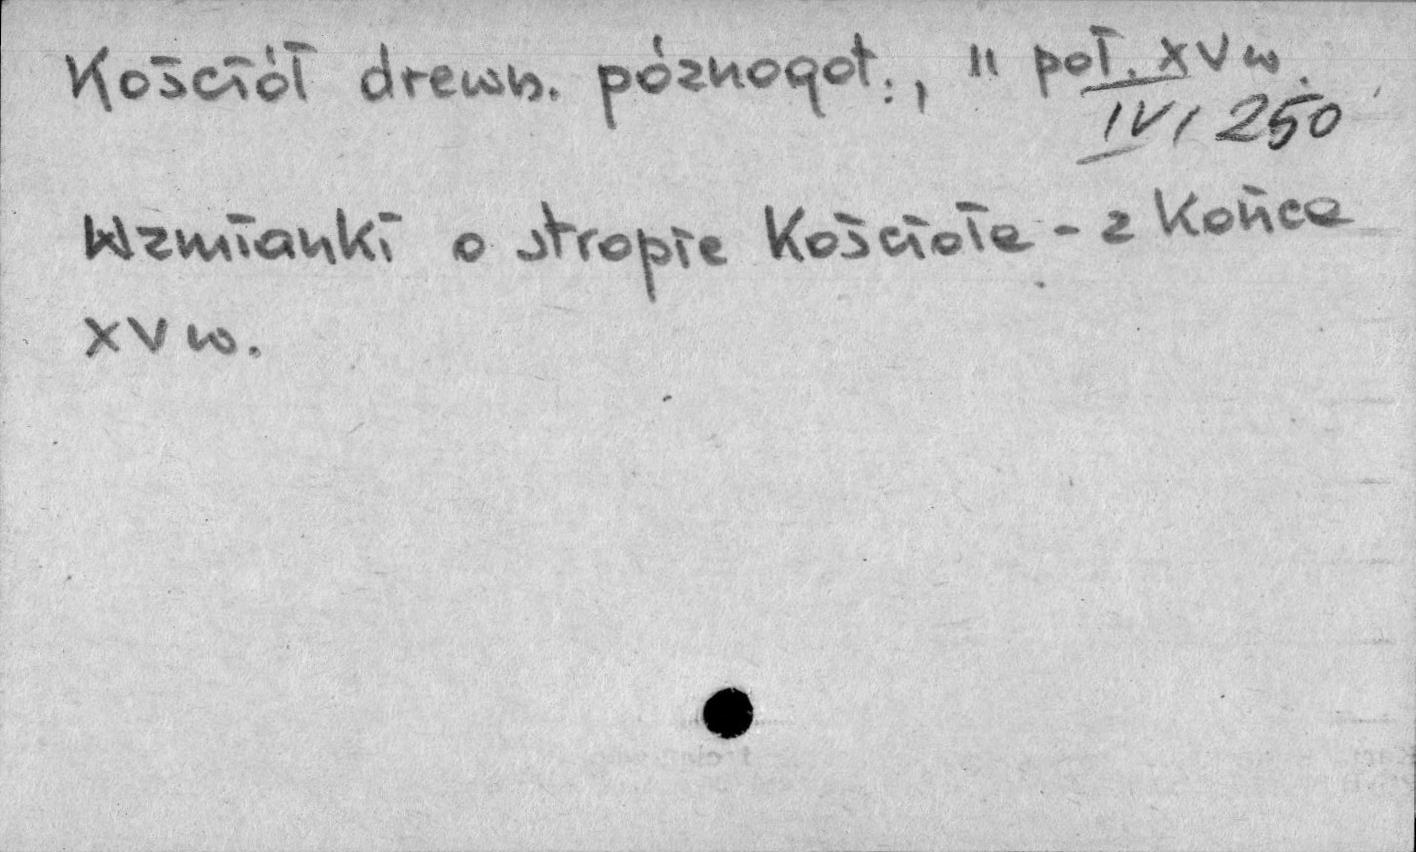 Kościół drewn. późnogot., II poł. XV w.
IV, 250
Wzmianki o stropie Kościoła - z Końca
XV w.